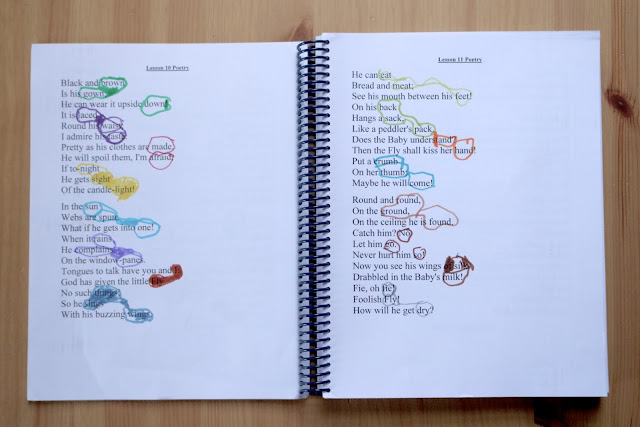 Lesson 10 Poetry
Black and brown
Is his gown;
He can wear it upside down!
It is laced
Round his waist!
I admire his taste.
Pretty as his clothes are made,
He will spoil them, I'm afraid.
If to-night
He gets sight
Of the candle-light!
In the sun
Webs are spun;
What if he gets into one!
When it rains
He complains
On the window-panes.
Tongues to talk have you and I:
God has given the little Fly
No such things;
So he sings
With his buzzing wings.
Lesson 11 Poetry
He can eat
Bread and meat;
See his mouth between his feet!
On his back
Hangs a sack,
Like a peddler's pack.
Does the Baby understand?
Then the Fly shall kiss her hand!
Put a crumb
On her thumb:
Maybe he will come!
Round and round,
On the ground,
On the ceiling he is found.
Catch him? No:
Let him go,
Never hurt him so!
Now you see his wings of silk
Drabbled in the Baby's milk!
Fie, oh fie!
Foolish Fly!
How will he get dry?